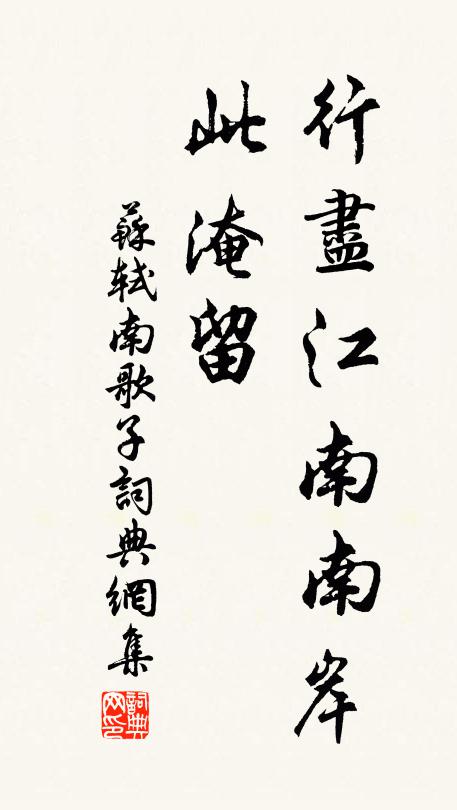 行盡江南南岸
此淹留
蘇軾南歌子詞典網集
詞典
网印